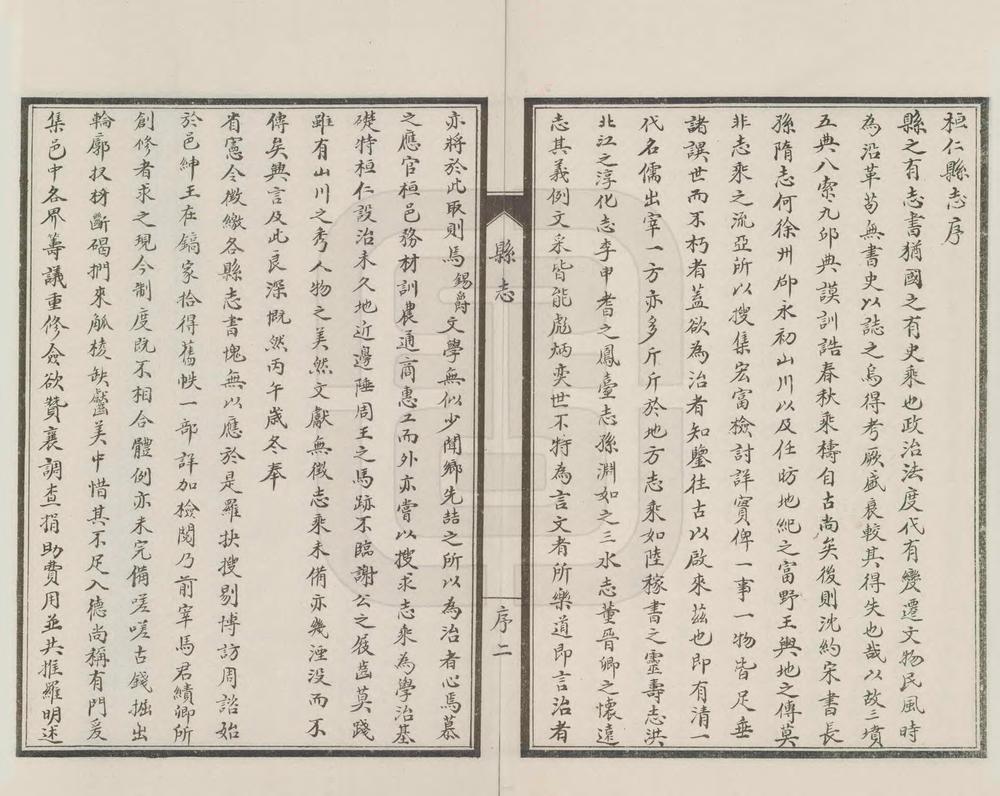 桓仁縣志序
縣之有志書猶國之有史乘也政治法度代有變遷文物民風時
為沿革苟無書史以誌之烏得考厥盛衰較其得失也哉以故三墳
五典八索九邱典謨訓誥春秋乘檮自古尚矣後則沈約宋書長
孫隋志何徐州郡永初山川以及任昉地紀之富野王輿地之傳莫
非志乘之流亞所以搜集宏富檢討詳實俾一事一物皆足垂
諸謨世而不朽者蓋欲為治者知鑒往古以啟來茲也即有清一
代名儒出宰一方亦多斤斤於地方志乘如陸稼書之靈壽志洪
北江之淳化志李申耆之鳳臺志孫淵如之三水志董晉卿之懷遠
志其義例文采皆能彪炳奕世不特為言文者所樂道即言治者
縣志
序二
亦將於此取則焉錫爵文學無似少聞鄉先喆之所以為治者心焉慕
之應官桓邑務材訓農通商惠工而外亦嘗以搜求志乘為學治基
礎特桓仁設治未久地近邊陲周王之馬跡不臨謝公之屐齒莫踐
雖有山川之秀人物之美然文獻無徵志乘未備亦幾湮没而不
傳矣興言及此良深慨然丙午歲冬奉
省憲令徵繳各縣志書愧無以應於是羅抉搜剔博訪周諮始
於邑紳王在鎬家拾得舊帙一部詳加檢閱乃前宰馬君績卿所
創修者求之現今制度既不相合體例亦未完備嗟嗟古錢掘出
輪廓捫來觚棱缺齾美中惜其不足入德尚稱有門爰
集邑中各界籌議重修僉欲贊襄調查捐助費用並共推羅明述